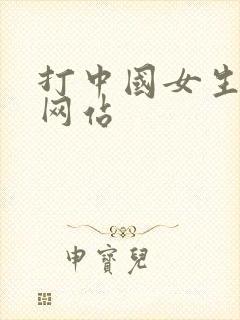 打中國女生
网佔
申寶兒